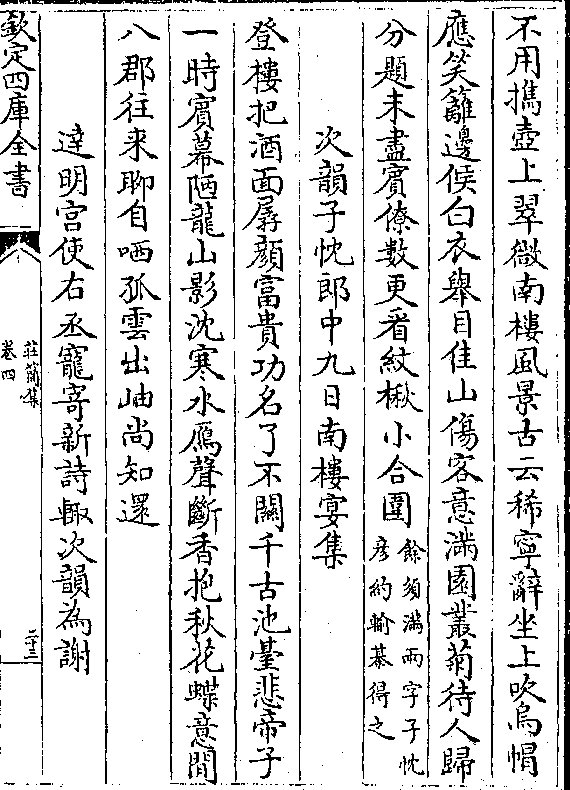 不用擕壺上翠微南樓風景古云稀寧辭坐上吹烏帽
應笑籬邊候白衣舉目佳山傷客意滿園叢菊待人歸
分題未盡賓僚數更看紋楸小合圍餘須滿兩字子忱
彦約輸棊得之
次韻子忱郎中九日南樓宴集
登樓把酒面孱顔富貴功名了不關千古池臺悲帝子
一時賓幕陋龍山影沈寒水鴈聲斷香抱秋花蝶意閒
八郡往来聊自哂孤雲出岫尚知還
達明宫使右丞寵寄新詩輙次韻為謝
欽定四庫全書
莊簡集
卷四
二十三